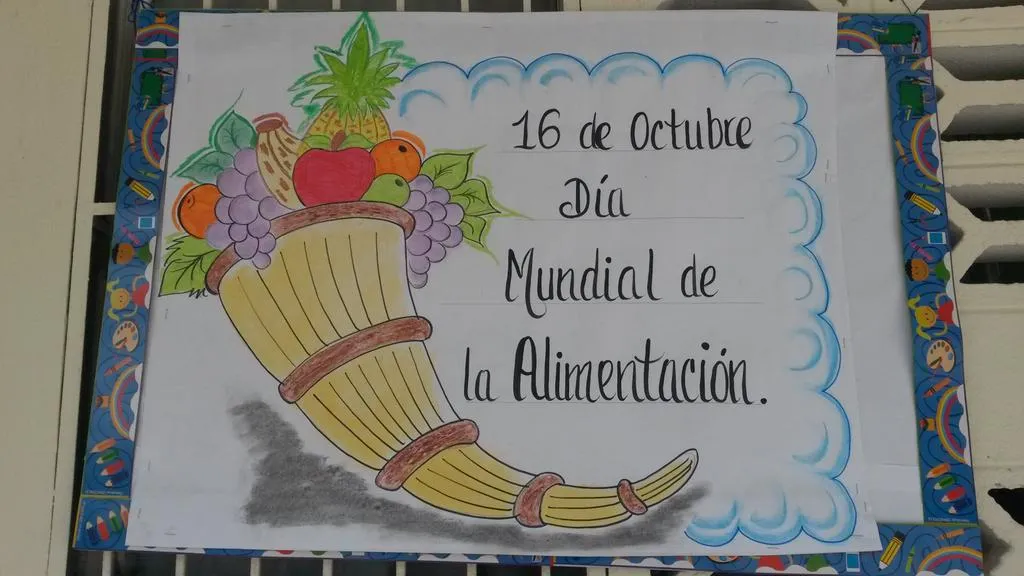 16 de Octubre
Día
Mundial de
la Alimentación.